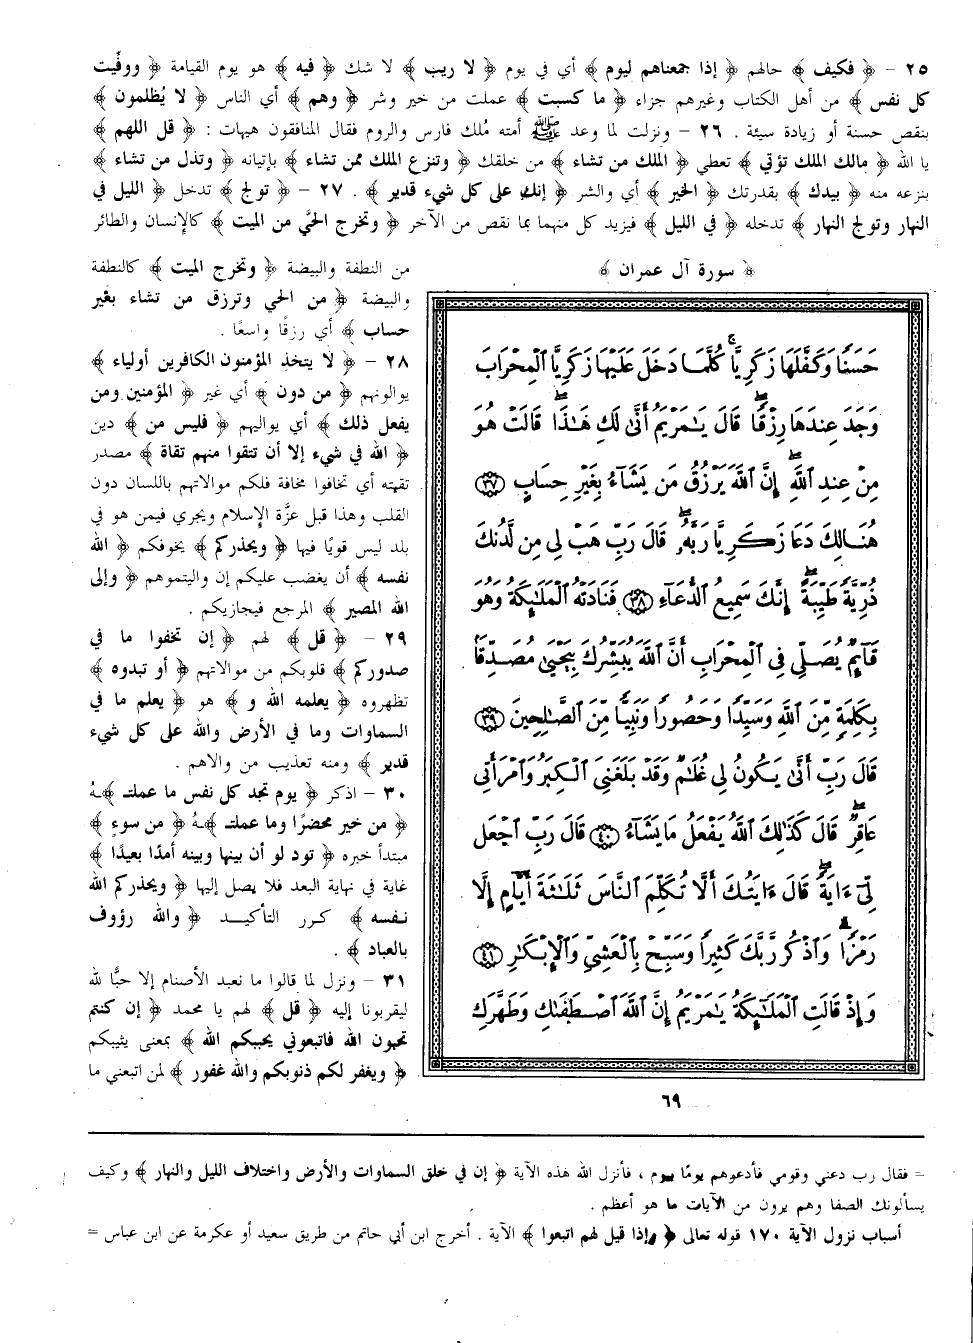 ٢٥ - ﴿ فكيف ﴾ حالهم ﴿ إذا جمعناهم ليوم ﴾ أي في يوم ﴿ لا ريب ﴾ لا شك ﴿ فيه ﴾ هو يوم القيامة ﴿ ووفِّيت
كل نفس ﴾ من أهل الكتاب وغيرهم جزاء ﴿ ما كسبت ﴾ عملت من خير وشر ﴿ وهم ﴾ أي الناس ﴿ لا يُظلمون ﴾
بنقص حسنة أو زيادة سيئة . ٢٦ - ونزلت لما وعد ﷺ أمته مُلك فارس والروم فقال المنافقون هيهات : ﴿ قل اللهم ﴾
يا الله ﴿ مالك الملك تؤتي ﴾ تعطي ﴿ الملك من تشاء ﴾ من خلقك ﴿ وتنزع الملك ممن تشاء ﴾ بإتيانه ﴿ وتذل من تشاء ﴾
بنزعه منه ﴿ بيدك ﴾ بقدرتك ﴿ الخير ﴾ أي والشر ﴿ إنك على كل شيء قدير ﴾ . ٢٧ - ﴿ تولج ﴾ تدخل ﴿ الليل في
النهار وتولج النهار ﴾ تدخله ﴿ في الليل ﴾ فيزيد كل منهما بما نقص من الآخر ﴿ وتخرج الحيَّ من الميت ﴾ كالإنسان والطائر
﴿ سورة آل عمران ﴾
حَسَنًا وَكَفَّلَهَا زَكَرِيَّا كُلَّمَا دَخَلَ عَلَيْهَا زَكَرِيَّا الْمِحْرَابَ
وَجَدَ عِندَهَا رِزْقًا قَالَ يَٰمَرْيَمُ أَنَّىٰ لَكِ هَٰذَا قَالَتْ هُوَ
مِنْ عِندِ ٱللَّهِ إِنَّ ٱللَّهَ يَرْزُقُ مَن يَشَآءُ بِغَيْرِ حِسَابٍ ٣٧
هُنَالِكَ دَعَا زَكَرِيَّا رَبَّهُۥ قَالَ رَبِّ هَبْ لِى مِن لَّدُنكَ
ذُرِّيَّةً طَيِّبَةً إِنَّكَ سَمِيعُ ٱلدُّعَآءِ ٣٨ فَنَادَتْهُ ٱلْمَلَٰٓئِكَةُ وَهُوَ
قَآئِمٌ يُصَلِّى فِى ٱلْمِحْرَابِ أَنَّ ٱللَّهَ يُبَشِّرُكَ بِيَحْيَىٰ مُصَدِّقًۢا
بِكَلِمَةٍ مِّنَ ٱللَّهِ وَسَيِّدًا وَحَصُورًا وَنَبِيًّا مِّنَ ٱلصَّٰلِحِينَ ٣٩
قَالَ رَبِّ أَنَّىٰ يَكُونُ لِى غُلَٰمٌ وَقَدْ بَلَغَنِىَ ٱلْكِبَرُ وَٱمْرَأَتِى
عَاقِرٌ قَالَ كَذَٰلِكَ ٱللَّهُ يَفْعَلُ مَا يَشَآءُ ٤٠ قَالَ رَبِّ ٱجْعَل
لِّىٓ ءَايَةً قَالَ ءَايَتُكَ أَلَّا تُكَلِّمَ ٱلنَّاسَ ثَلَٰثَةَ أَيَّامٍ إِلَّا
رَمْزًا وَٱذْكُر رَّبَّكَ كَثِيرًا وَسَبِّحْ بِٱلْعَشِىِّ وَٱلْإِبْكَٰرِ ٤١
وَإِذْ قَالَتِ ٱلْمَلَٰٓئِكَةُ يَٰمَرْيَمُ إِنَّ ٱللَّهَ ٱصْطَفَىٰكِ وَطَهَّرَكِ
٦٩
من النطفة والبيضة ﴿ وتخرج الميت ﴾ كالنطفة
والبيضة ﴿ من الحي وترزق من تشاء بغير
حساب ﴾ أي رزقًا واسعًا .
٢٨ - ﴿ لا يتخذ المؤمنون الكافرين أولياء ﴾
يوالونهم ﴿ من دون ﴾ أي غير ﴿ المؤمنين ومن
يفعل ذلك ﴾ أي يواليهم ﴿ فليس من ﴾ دين
﴿ الله في شيء إلا أن تتقوا منهم تقاة ﴾ مصدر
تقيته أي تخافوا مخافة فلكم موالاتهم باللسان دون
القلب وهذا قبل عزَّة الإسلام ويجري فيمن هو في
بلد ليس قويًا فيها ﴿ ويحذركم ﴾ يخوفكم ﴿ الله
نفسه ﴾ أن يغضب عليكم إن واليتموهم ﴿ وإلى
الله المصير ﴾ المرجع فيجازيكم .
٢٩ - ﴿ قل ﴾ لهم ﴿ إن تخفوا ما في
صدوركم ﴾ قلوبكم من موالاتهم ﴿ أو تبدوه ﴾
تظهروه ﴿ يعلمه الله و ﴾ هو ﴿ يعلم ما في
السماوات وما في الأرض والله على كل شيء
قدير ﴾ ومنه تعذيب من والاهم .
٣٠ - اذكر ﴿ يوم تجد كل نفس ما عملت ﴾ـهُ
﴿ من خير محضرًا وما عملت ﴾ـهُ ﴿ من سوءٍ ﴾
مبتدأ خبره ﴿ تود لو أن بينها وبينه أمدًا بعيدًا ﴾
غاية في نهاية البعد فلا يصل إليها ﴿ ويحذركم الله
نفسه ﴾ كرر التأكيد ﴿ والله رؤوف
بالعباد ﴾ .
٣١ - ونزل لما قالوا ما نعبد الأصنام إلا حبًّا لله
ليقربونا إليه ﴿ قل ﴾ لهم يا محمد ﴿ إن كنتم
تحبون الله فاتبعوني يحببكم الله ﴾ بمعنى يثيبكم
﴿ ويغفر لكم ذنوبكم والله غفور ﴾ لمن اتبعني ما
= فقال رب دعني وقومي فأدعوهم يومًا بيوم ، فأنزل الله هذه الآية ﴿ إن في خلق السماوات والأرض واختلاف الليل والنهار ﴾ وكيف
يسألونك الصفا وهم يرون من الآيات ما هو أعظم .
أسباب نزول الآية ١٧٠ قوله تعالى ﴿ وإذا قيل لهم اتبعوا ﴾ الآية . أخرج ابن أبي حاتم من طريق سعيد أو عكرمة عن ابن عباس =